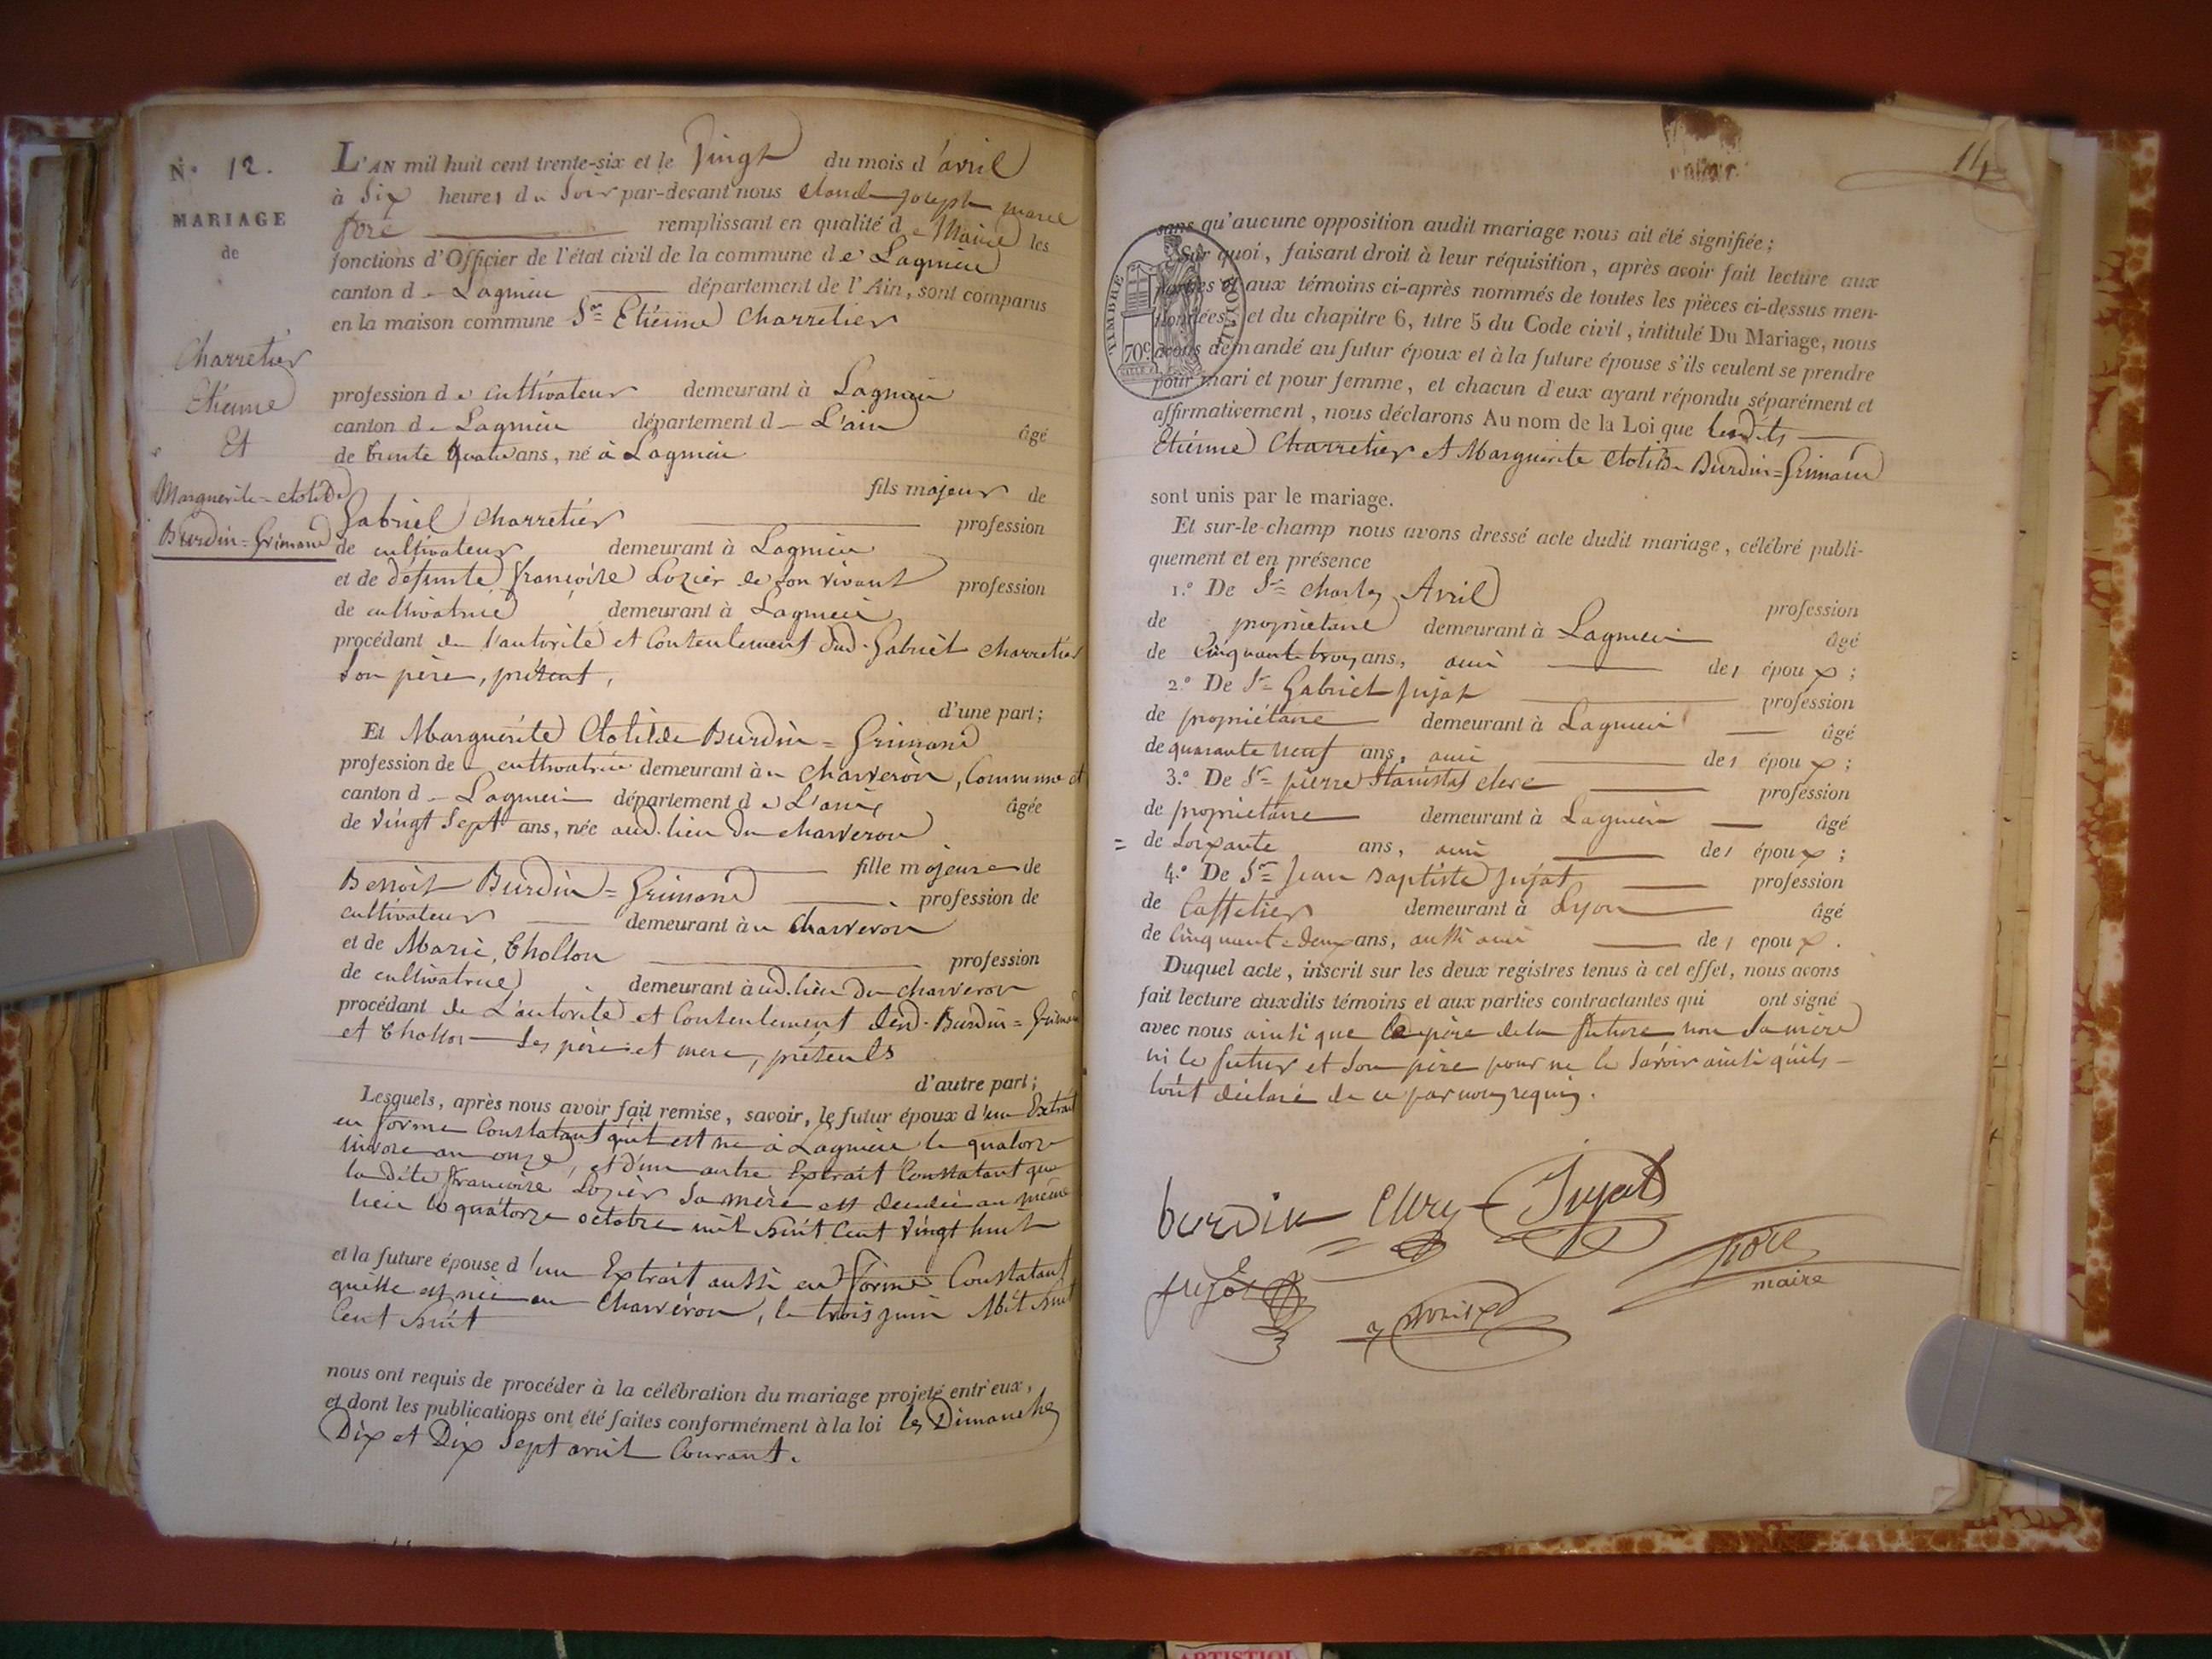 N.° 12.
MARIAGE
de
Charretier
Etienne
Et
Marguerite-Clotilde
Burdin=Grimand
L'AN mil huit cent trente-six et le Vingt du mois d'avril
à Six heures du Soir par-devant nous Claude Joseph marie
remplissant en qualité de Maire les
fonctions d'Officier de l'état civil de la commune de Lagnieu
canton de Lagnieu département de l'Ain, sont comparus
en la maison commune Sr Etienne Charretier
profession de cultivateur demeurant à Lagnieu
canton de Lagnieu département de L'ain âgé
de trente quatre ans, né à Lagnieu
fils majeur de
Gabriel Charretier profession
de cultivateur demeurant à Lagnieu
et de défunte françoise Lozier de son vivant profession
de cultivatrice demeurant à Lagnieu
procédant de l'autorité et Consentement dud. Gabriel Charretier
Son père, présent,
d'une part;
Et Marguerite Clotilde Burdin=Grimand
profession de cultivatrice demeurant à Charveron, Commune et
canton de Lagnieu département de L'ain âgée
de Vingt Sept ans, née aud. lieu du Charveron
fille majeure de
Benoit Burdin=Grimand profession de
cultivateur demeurant au Charveron
et de Marie Chollon profession
de cultivatrice demeurant aud. lieu du Charveron
procédant de L'autorité et Consentement desd. Burdin=Grimand
et Chollon Ses père et mere, présents
d'autre part;
Lesquels, après nous avoir fait remise, savoir, le futur époux d'un Extrait
en forme Constatant qu'il est né à Lagnieu le quatorze
nivose an onze, et d'un autre Extrait Constatant que
la dite françoise Lozier Sa mère est décédée au même
lieu le quatorze octobre mil huit Cent Vingt huit
et la future épouse d'un Extrait aussi en forme Constatant
qu'elle est née au Charveron, le trois juin Mil huit
Cent huit
nous ont requis de procéder à la célébration du mariage projeté entr'eux,
et dont les publications ont été faites conformément à la loi les Dimanches
Dix et Dix Sept avril Courant.
14
sans qu'aucune opposition audit mariage nous ait été signifiée;
Sur quoi, faisant droit à leur réquisition, après avoir fait lecture aux
parties et aux témoins ci-après nommés de toutes les pièces ci-dessus men-
tionnées, et du chapitre 6, titre 5 du Code civil, intitulé Du Mariage, nous
avons demandé au futur époux et à la future épouse s'ils veulent se prendre
pour mari et pour femme, et chacun d'eux ayant répondu séparément et
affirmativement, nous déclarons Au nom de la Loi que lesdits
Etienne Charretier et Marguerite Clotilde Burdin=Grimand
sont unis par le mariage.
TIMBRE ROYAL
70c
Et sur-le-champ nous avons dressé acte dudit mariage, célébré publi-
quement et en présence
1.° De Sr Charles Avril profession
de propriétaire demeurant à Lagnieu âgé
de Cinquante trois ans, ami des époux;
2.° De Sr Gabriel Jujat profession
de propriétaire demeurant à Lagnieu âgé
de quarante neuf ans, ami des époux;
3.° De Sr pierre Stanislas clerc profession
de propriétaire demeurant à Lagnieu âgé
= de soixante ans, ami des époux;
4.° De Sr Jean Baptiste Jujat profession
de Caffetier demeurant à Lyon âgé
de Cinquante deux ans, aussi ami des epoux.
Duquel acte, inscrit sur les deux registres tenus à cet effet, nous avons
fait lecture auxdits témoins et aux parties contractantes qui ont signé
avec nous ainsi que le père de la future non Sa mère
ni le futur et Son père pour ne le Savoir ainsi qu'ils
l'ont déclaré de ce par nous requis.
burdin Clerc Jujat
jujat avril
maire